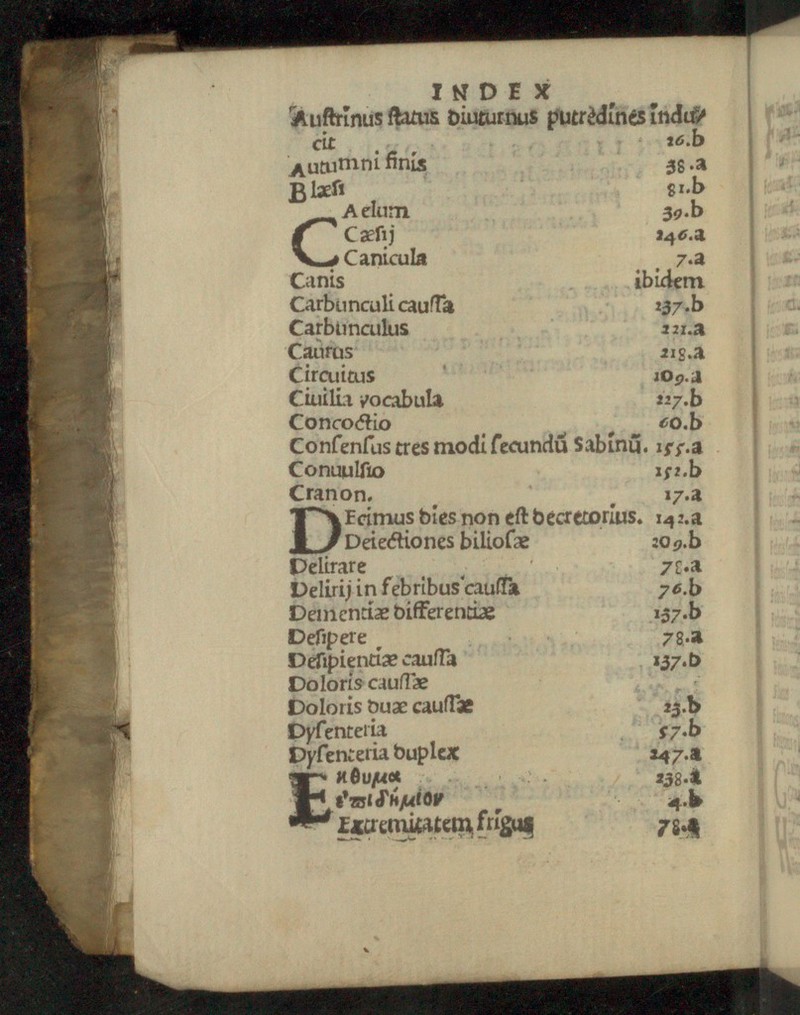 INDEX
Auſtrinus ſtatus diuturnus putrèdines indu⸗
cit 26.b
Autumni finis 38.a
Blæſi 81.b
CAelum 39.b
Cæſij 246.a
Canicula 7.a
Canis ibidem
Carbunculi cauſſa 237.b
Carbunculus 221.a
Caurus 218.a
Circuitus 109.a
Ciuilia vocabula 227.b
Concoctio 60.b
Conſenſus tres modi ſecundū Sabinū. 155.a
Conuulſio 152.b
Cranon. 17.a
DEcimus dies non eſt decretorius. 142.a
Deiectiones bilioſæ 209.b
Delirare 78.a
Delirij in febribus cauſſa 76.b
Dementiæ differentiæ 137.b
Deſipere 78.a
Deſipientiæ cauſſa 137.b
Doloris cauſſæ
Doloris duæ cauſſæ 23.b
Dyſenteria 57.b
Dyſenteria duplex 247.a
Eκθυμα 238.a
ἐπιδήμιον 4.b
Extremitatem frigus 78.a